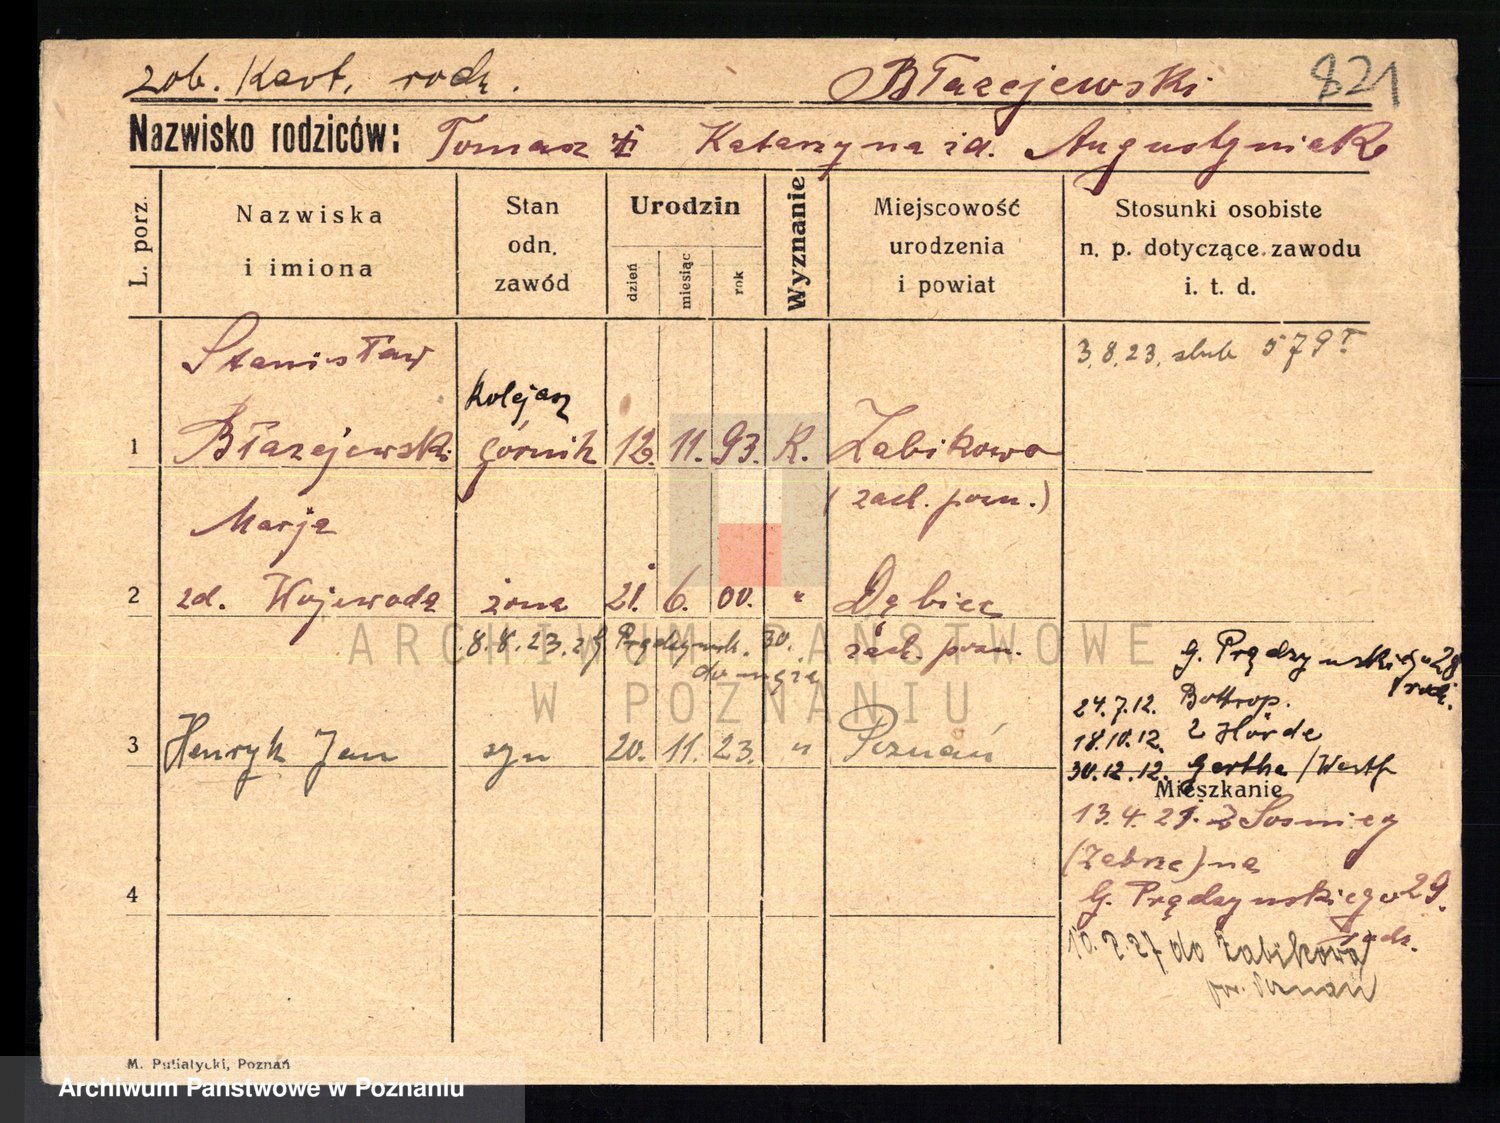 zob. Kart. rodz. Błażejewski 821
Nazwisko rodziców: Tomasz i Katarzyna zd. Augustyniak
L. porz.
Nazwiska
i imiona
Stan
odn.
zawód
Urodzin
dzień
miesiąc
rok
Wyznanie
Miejscowość
urodzenia
i powiat
Stosunki osobiste
n. p. dotyczące zawodu
i. t. d.
Stanisław 3.8.23. ślub 579
Kolejarz
1 Błażejewski górnik 12. 11. 93. K. Żabikowo
(zach. pozn.)
Marja
2 zd. Wojewoda żona 21. 6. 00. " Dębiec
8.8.23. z G. Prądzyńsk. 30. zach. pozn.
do męża
G. Prądzyńskiego 28
rodz.
24.7.12. Bottrop.
18.10.12. z Hörde
3 Henryk Jan syn 20. 11. 23. " Poznań
30.12.12. Gerthe /Westf
Mieszkanie
13.4.21. z Sosnicy
(Zabrze) na
4 G. Prądzyńskiego 29.
rodz.
10.2.27 do Żabikowa
pow. Poznań
M. Putiatycki, Poznań
ARCHIWUM PAŃSTWOWE
W POZNANIU
Archiwum Państwowe w Poznaniu